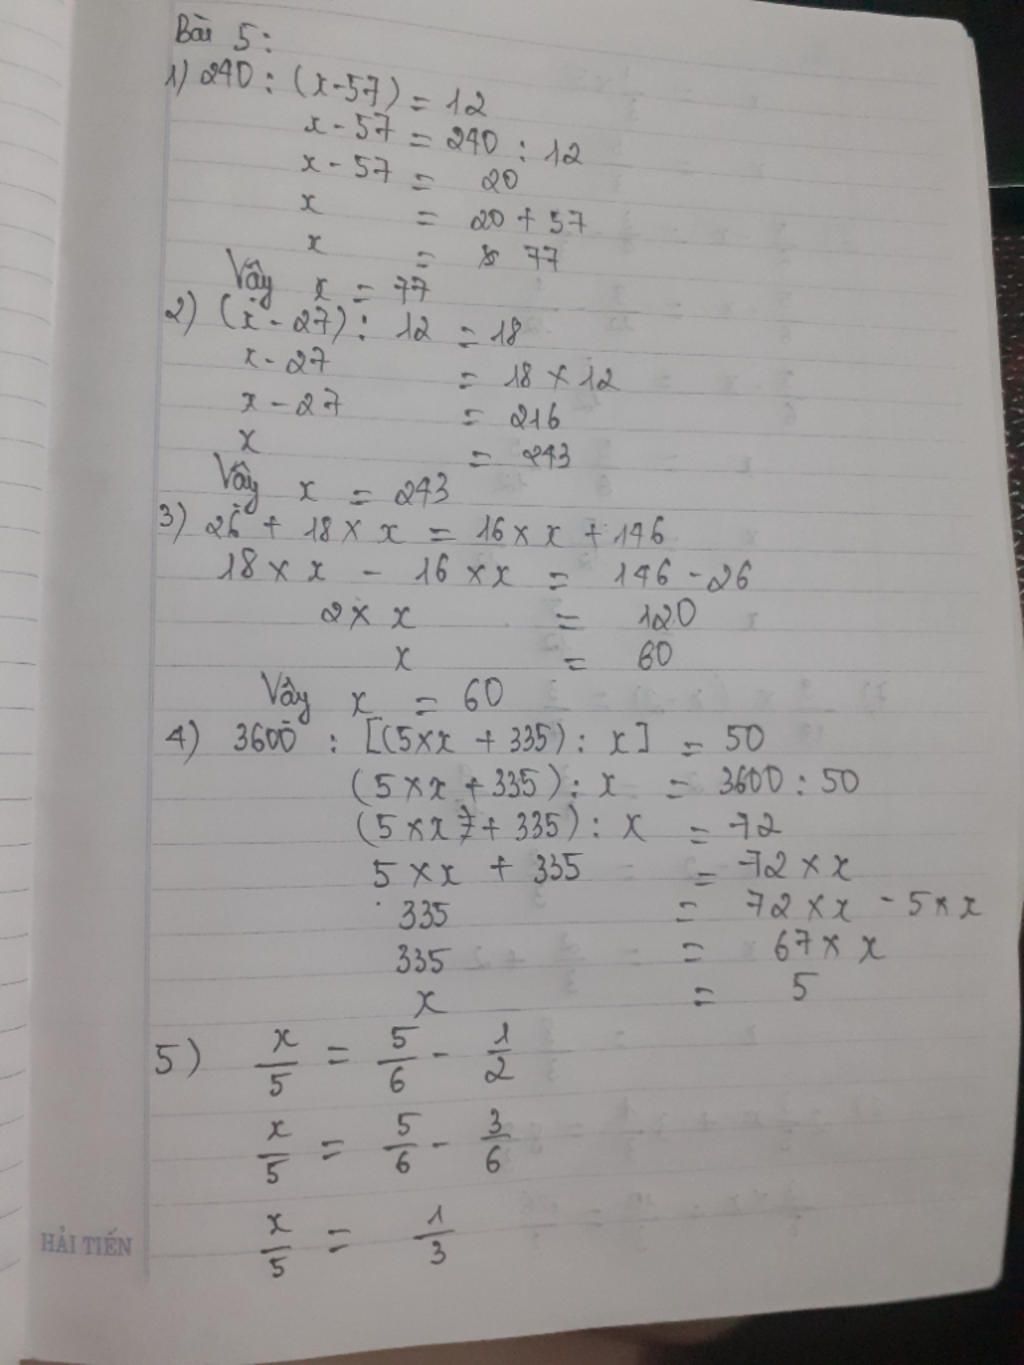 Bài 5:
1) 240 : (x-57) = 12
x - 57 = 240 : 12
x - 57 = 20
x = 20 + 57
x = 77
Vậy x = 77
2) (x - 27) : 12 = 18
x - 27 = 18 × 12
x - 27 = 216
x = 243
Vậy x = 243
3) 26 + 18 × x = 16 × x + 146
18 × x - 16 × x = 146 - 26
2 × x = 120
x = 60
Vậy x = 60
4) 3600 : [(5 × x + 335) : x] = 50
(5 × x + 335) : x = 3600 : 50
(5 × x + 335) : x = 72
5 × x + 335 = 72 × x
335 = 72 × x - 5 × x
335 = 67 × x
x = 5
5) x/5 = 5/6 - 1/2
x/5 = 5/6 - 3/6
x/5 = 1/3
HẢI TIẾN